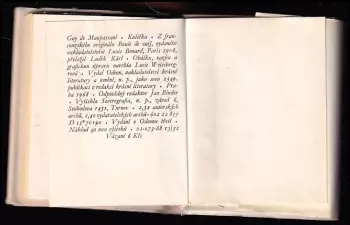 Guy de Maupassant • Kulička • Z fran-
couzského originálu Boule de suif, vydaného
nakladatelstvím Louis Conard, Paris 1908,
přeložil Luděk Kárl • Obálku, vazbu a
grafickou úpravu navrhla Lucie Weisberge-
rová • Vydal Odeon, nakladatelství krásné
literatury a umění, n. p., jako svou 2349.
publikaci v redakci krásné literatury • Pra-
ha 1968 • Odpovědný redaktor Jan Binder
• Vytiskla Severografia, n. p., závod 6,
Svobodova 1431, Turnov • 2,30 autorských
archů, 2,40 vydavatelských archů • 602 22 855
D 15*70190 • Vydání v Odeonu třetí •
Náklad 40 000 výtisků • 01-073-68 13/32
Vázané 6 Kčs